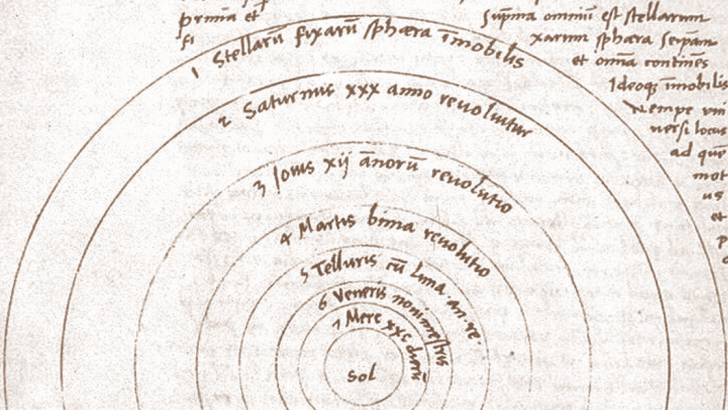 prima et
fi
Suprema omniũ est stellarum
xarum sphæra seipsam
et omĩa continẽs
Ideoq; imobilis
Nempe
versi locus
ad quẽ
mot
us
et
1 Stellarũ fixarũ sphæra ĩmobilis
2 Saturnus xxx anno revoluitur
3 Iouis xij ãnorũ reuolutio
4 Martis bima reuolutio
5 Telluris cũ Luna. an. re.
6 Veneris nonimestris
7 Merc xxc dierũ
Sol